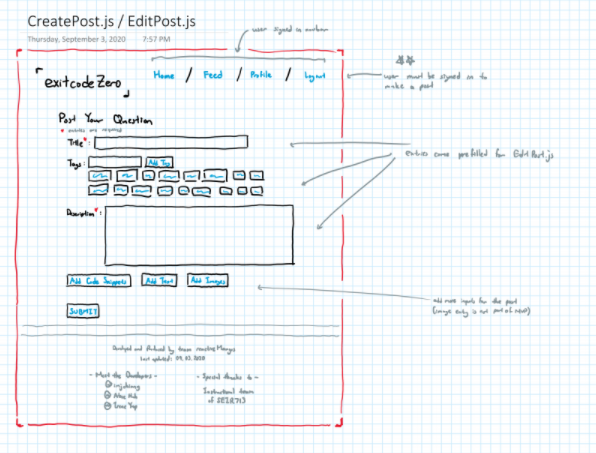 CreatePost.js / EditPost.js
Thursday, September 3, 2020 7:57 PM
user signed in navbar
exitcodeZero
Home / Feed / Profile / Logout
user must be signed in to
make a post
Post Your Question
* entries are required
Title*:
entries come prefilled for EditPost.js
Tags: Add Tag
Description*:
Add Code Snippets Add Text Add Images
add more inputs for the post
SUBMIT
Developed and Produced by team
Last updated: 09.03.2020
- Meet the Developers -
- Special thanks to -
Instructional team
of SEIR713